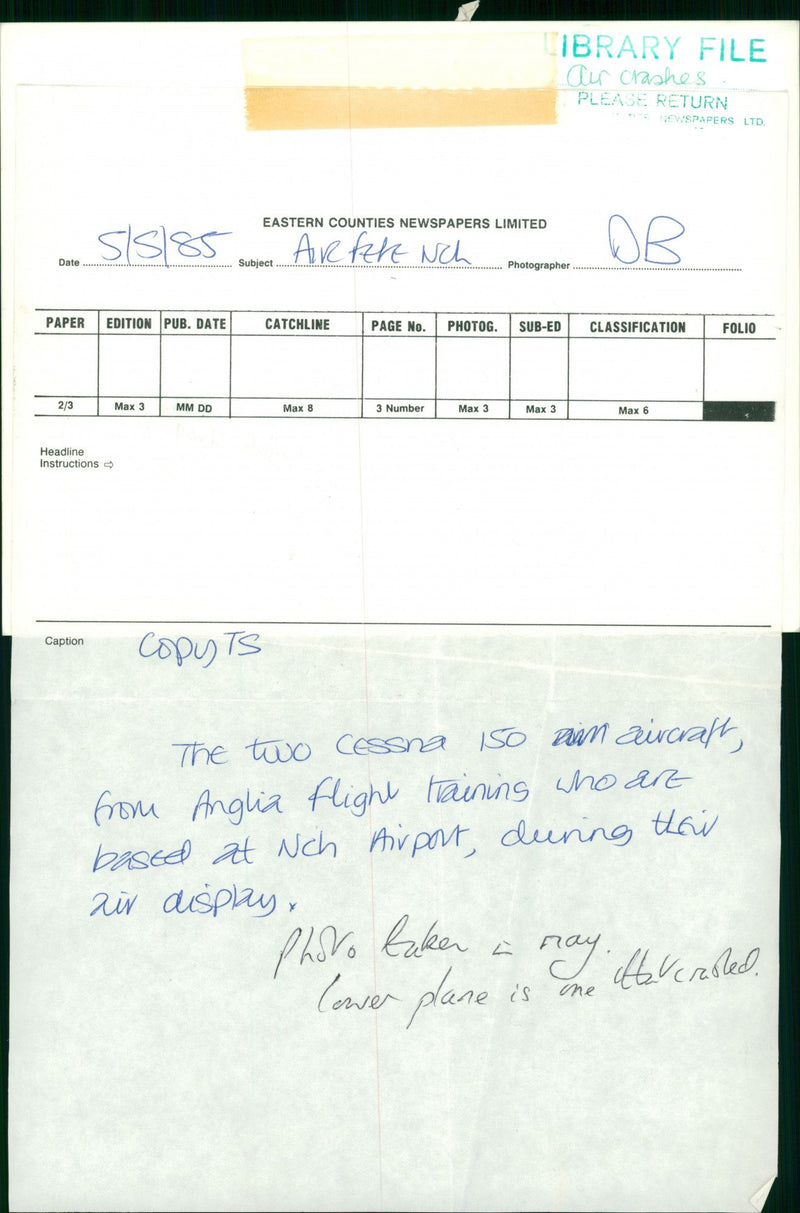 LIBRARY FILE
Air crashes
PLEASE RETURN
NEWSPAPERS LTD.
EASTERN COUNTIES NEWSPAPERS LIMITED
Date 5/5/85 Subject AIR FETE NCH Photographer DB
PAPER EDITION PUB. DATE CATCHLINE PAGE No. PHOTOG. SUB-ED CLASSIFICATION FOLIO
2/3 Max 3 MM DD Max 8 3 Number Max 3 Max 3 Max 6
Headline
Instructions ⇨
Caption Copy TS
The two Cessna 150 aircraft,
from Anglia flight training who are
based at Nch Airport, during their
air display.
Photo taken in may.
lower plane is one that crashed.